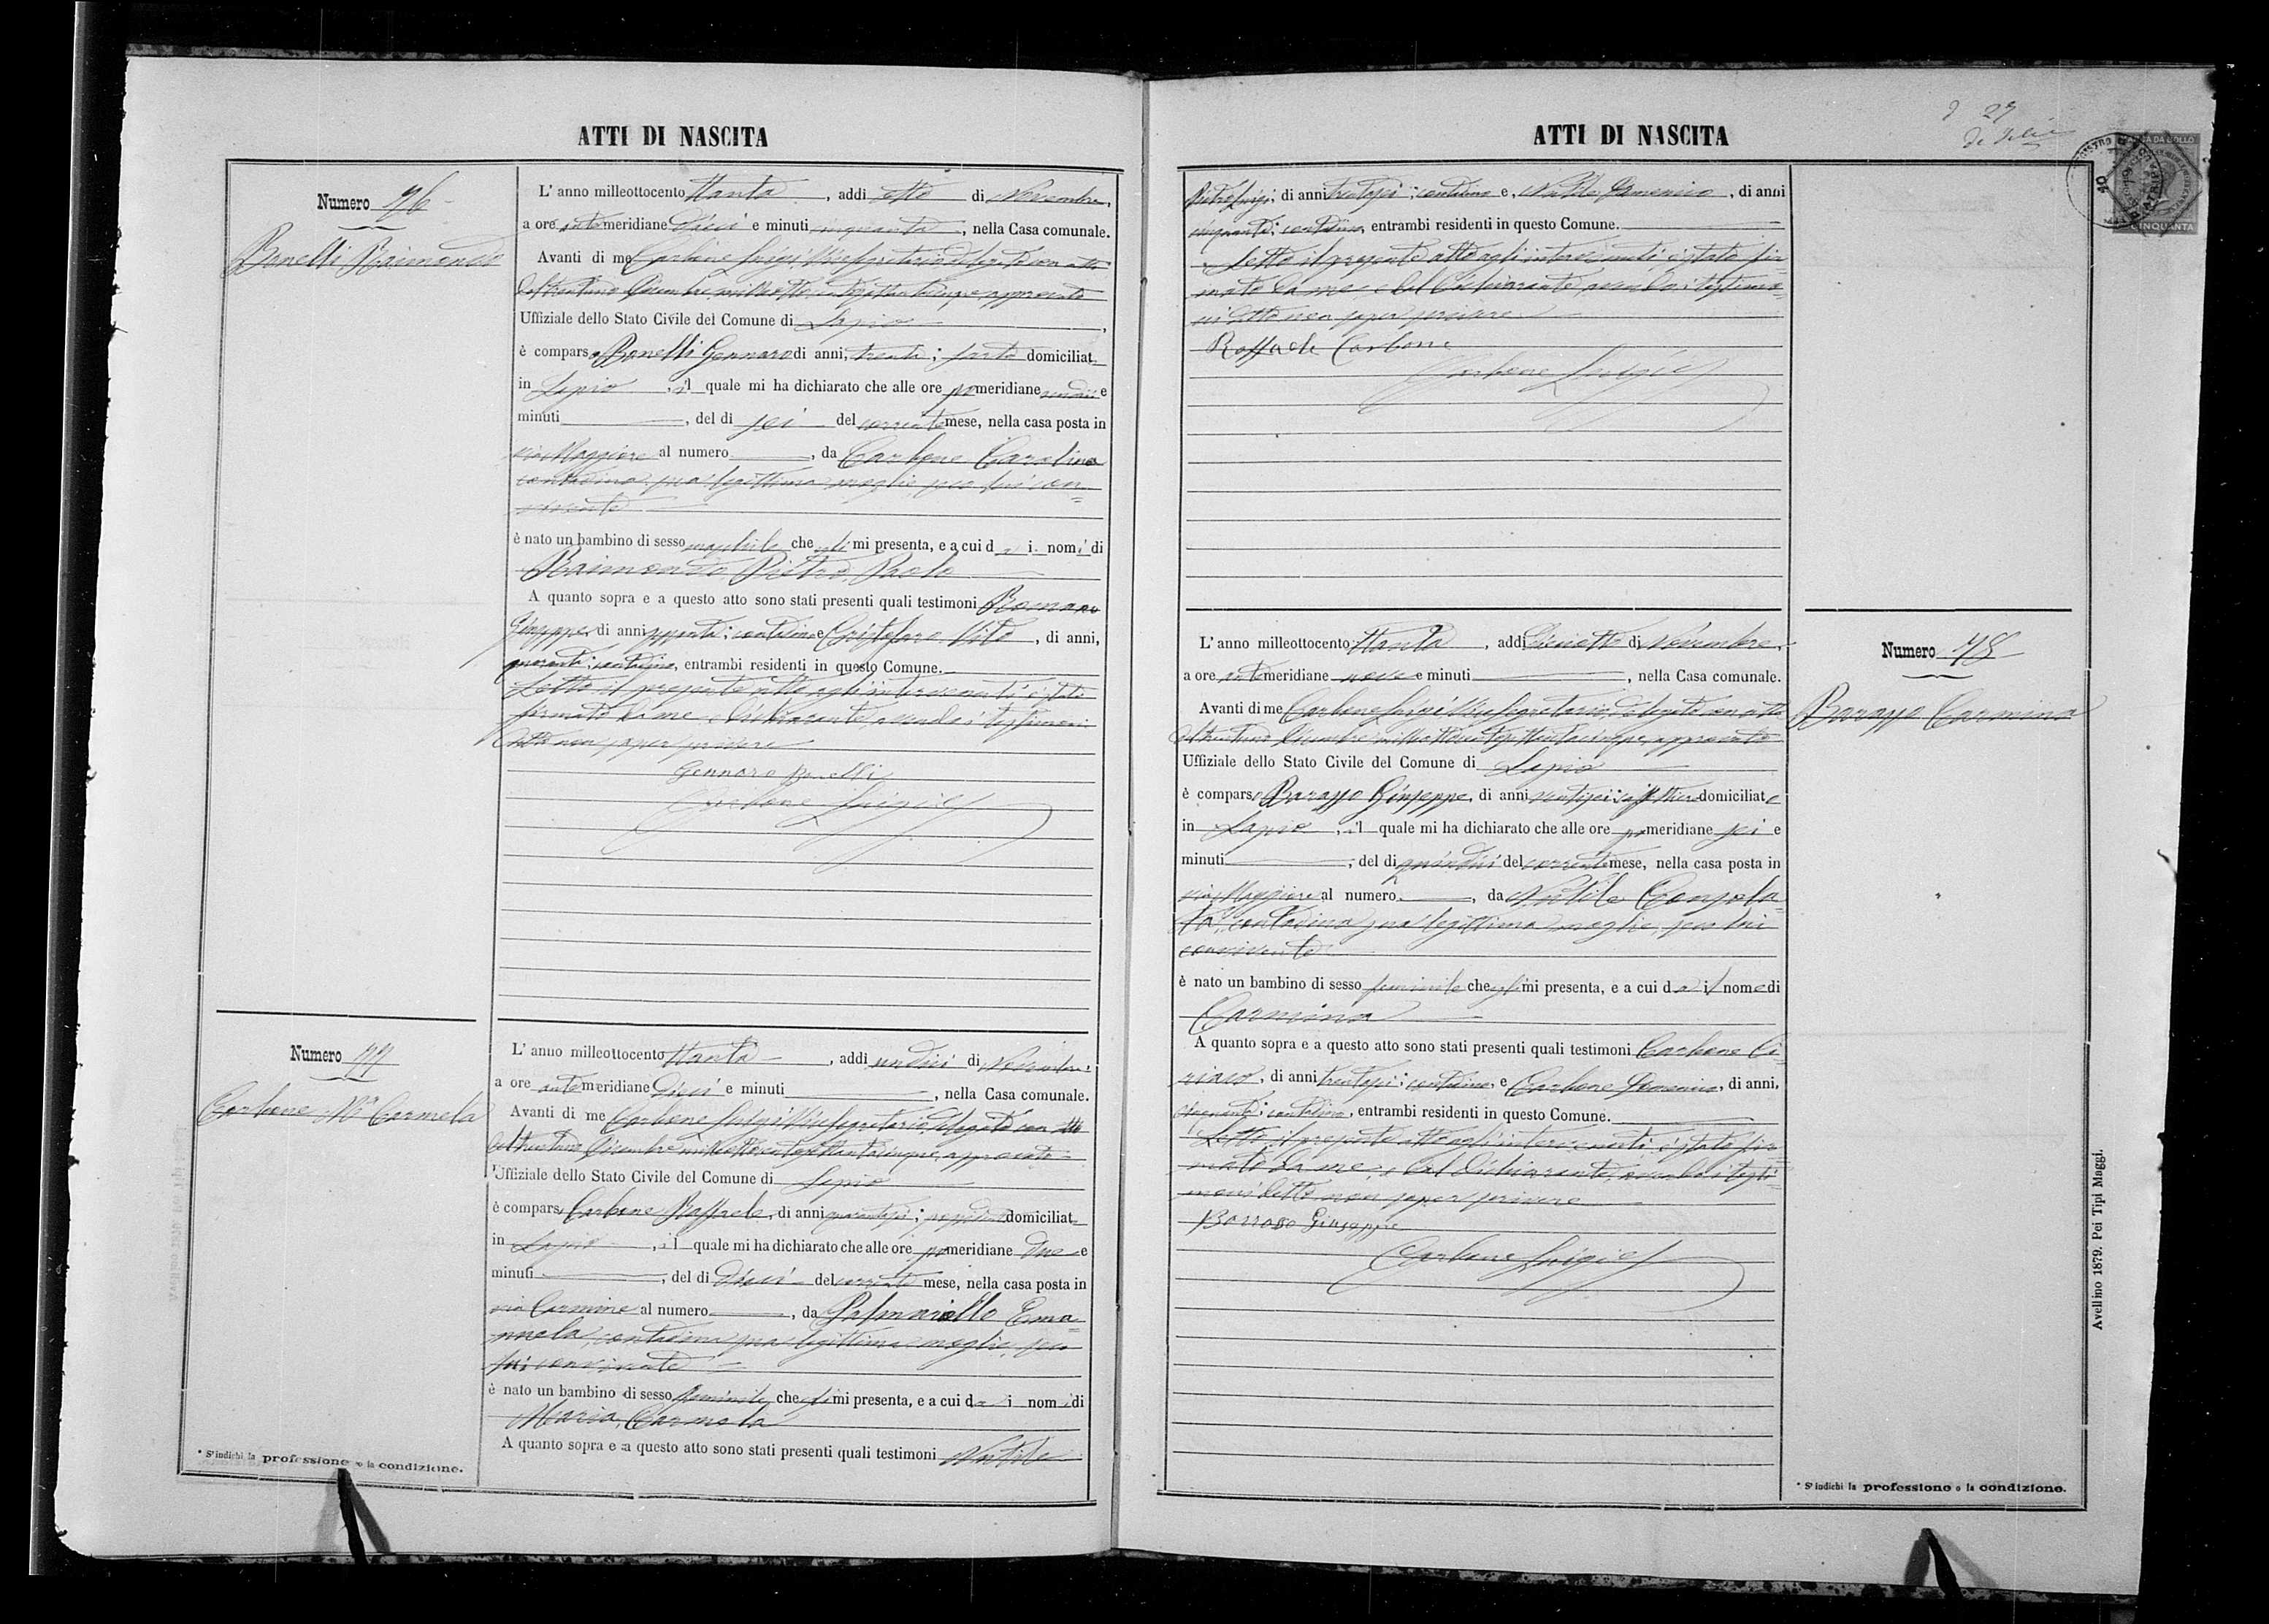 ATTI DI NASCITA
Numero 76
Bonelli Raimondo
L' anno milleottocento ttanta, addì otto di Novembre,
a ore antemeridiane dieci e minuti cinquanta, nella Casa comunale.
Avanti di me Carbone Luigi Vicesegretario delegato con atto
del trentuno Dicembre milleottocentosettantacinque, approvato
Uffiziale dello Stato Civile del Comune di Lapio,
è comparso Bonelli Gennaro di anni, trenta; sarto domiciliat
in Lapio, il quale mi ha dichiarato che alle ore pomeridiane undici e
minuti, del dì sei del corrente mese, nella casa posta in
via Maggiore al numero, da Carbone Carolina
contadina sua legittima moglie seco lui con=
vivente
è nato un bambino di sesso maschile che egli mi presenta, e a cui dà i nomi di
Raimondo Pietro Paolo
A quanto sopra e a questo atto sono stati presenti quali testimoni Romano
Giuseppe, di anni contadino e Cristofaro Vito, di anni,
quaranta; contadino, entrambi residenti in questo Comune.
Letto il presente atto agli intervenuti è stato
firmato da me e dichiarante, avendo i testimoni
detto non saper scrivere
Gennaro Bonelli
Carbone Luigi
Numero 77
Carbone Mª Carmela
L' anno milleottocento ttanta, addì undici di Novembre,
a ore antemeridiane dieci e minuti, nella Casa comunale.
Avanti di me Carbone Luigi Vicesegretario, delegato con atto
del trentuno Dicembre milleottocentosettantacinque, approvato
Uffiziale dello Stato Civile del Comune di Lapio
è compars Carbone Raffaele, di anni quarantasei; domiciliat
in Lapio, il quale mi ha dichiarato che alle ore pomeridiane due e
minuti, del dì dieci del corrente mese, nella casa posta in
via Carmine al numero, da Palmariello Ema=
nuela, contadina sua legittima moglie, seco
lui convivente
è nato un bambino di sesso femminile, che egli mi presenta, e a cui dà i nomi di
Maria, Carmela
A quanto sopra e a questo atto sono stati presenti quali testimoni Nutile
* S'indichi la professione o la condizione.
ATTI DI NASCITA
Pietro Luigi, di anni trentasei; contadino e, Nutile Domenico, di anni
cinquanta; contadino, entrambi residenti in questo Comune.
Letto il presente atto agli intervenuti è stato fir=
mato da me e dal dichiarante, avendo i testimo=
ni detto non saper scrivere
Raffaele Carbone
Carbone Luigi
L' anno milleottocento ttanta, addì dieciotto di Novembre,
a ore antemeridiane nove e minuti, nella Casa comunale.
Avanti di me Carbone Luigi Vicesegretario, delegato con atto
del trentuno Dicembre milleottocentosettantacinque, approvato
Uffiziale dello Stato Civile del Comune di Lapio
è comparso Barasso Giuseppe, di anni ventisei; domiciliato
in Lapio, il quale mi ha dichiarato che alle ore pomeridiane sei e
minuti, del dì quindici del corrente mese, nella casa posta in
via Maggiore al numero, da Nutile Consola=
ta, contadina sua legittima moglie, seco lui
convivente
è nato un bambino di sesso femminile che egli mi presenta, e a cui dà il nome di
Carmina
A quanto sopra e a questo atto sono stati presenti quali testimoni Carbone Ci=
riaco, di anni trentasei; contadino, e Carbone Domenico, di anni,
cinquanta; contadino, entrambi residenti in questo Comune.
Letto il presente atto agli intervenuti, è stato fir=
mato da me, e dal dichiarante, avendo i testi=
moni detto non saper scrivere
Barraso Giuseppe
Carbone Luigi
Numero 78
Barasso Carmina
* S'indichi la professione o la condizione.
Avellino 1879. Pei Tipi Maggi.
CINQUANTA